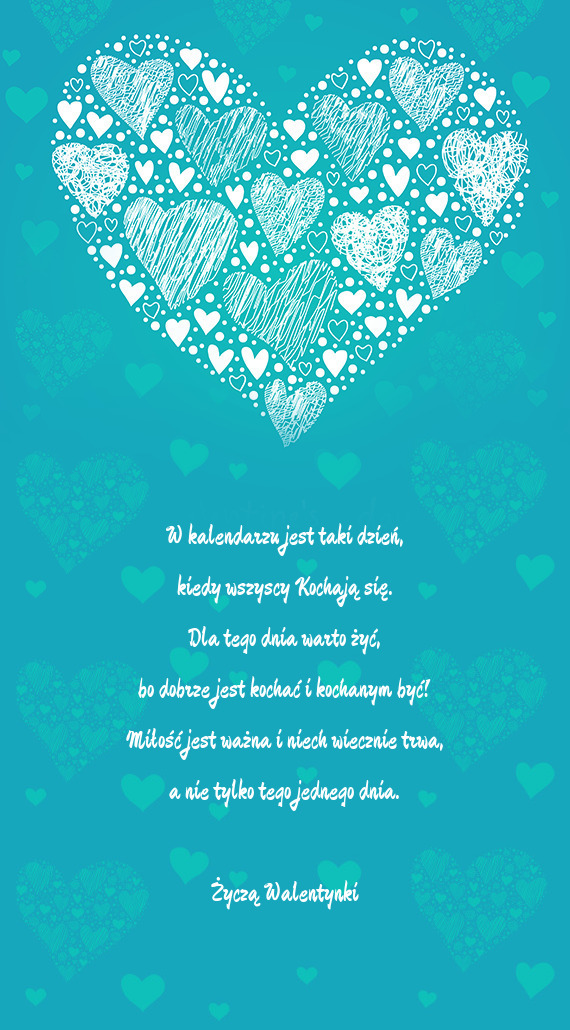 W kalendarzu jest taki dzień,
kiedy wszyscy Kochają się.
Dla tego dnia warto żyć,
bo dobrze jest kochać i kochanym być!
Miłość jest ważna i niech wiecznie trwa,
a nie tylko tego jednego dnia.
Życzą Walentynki